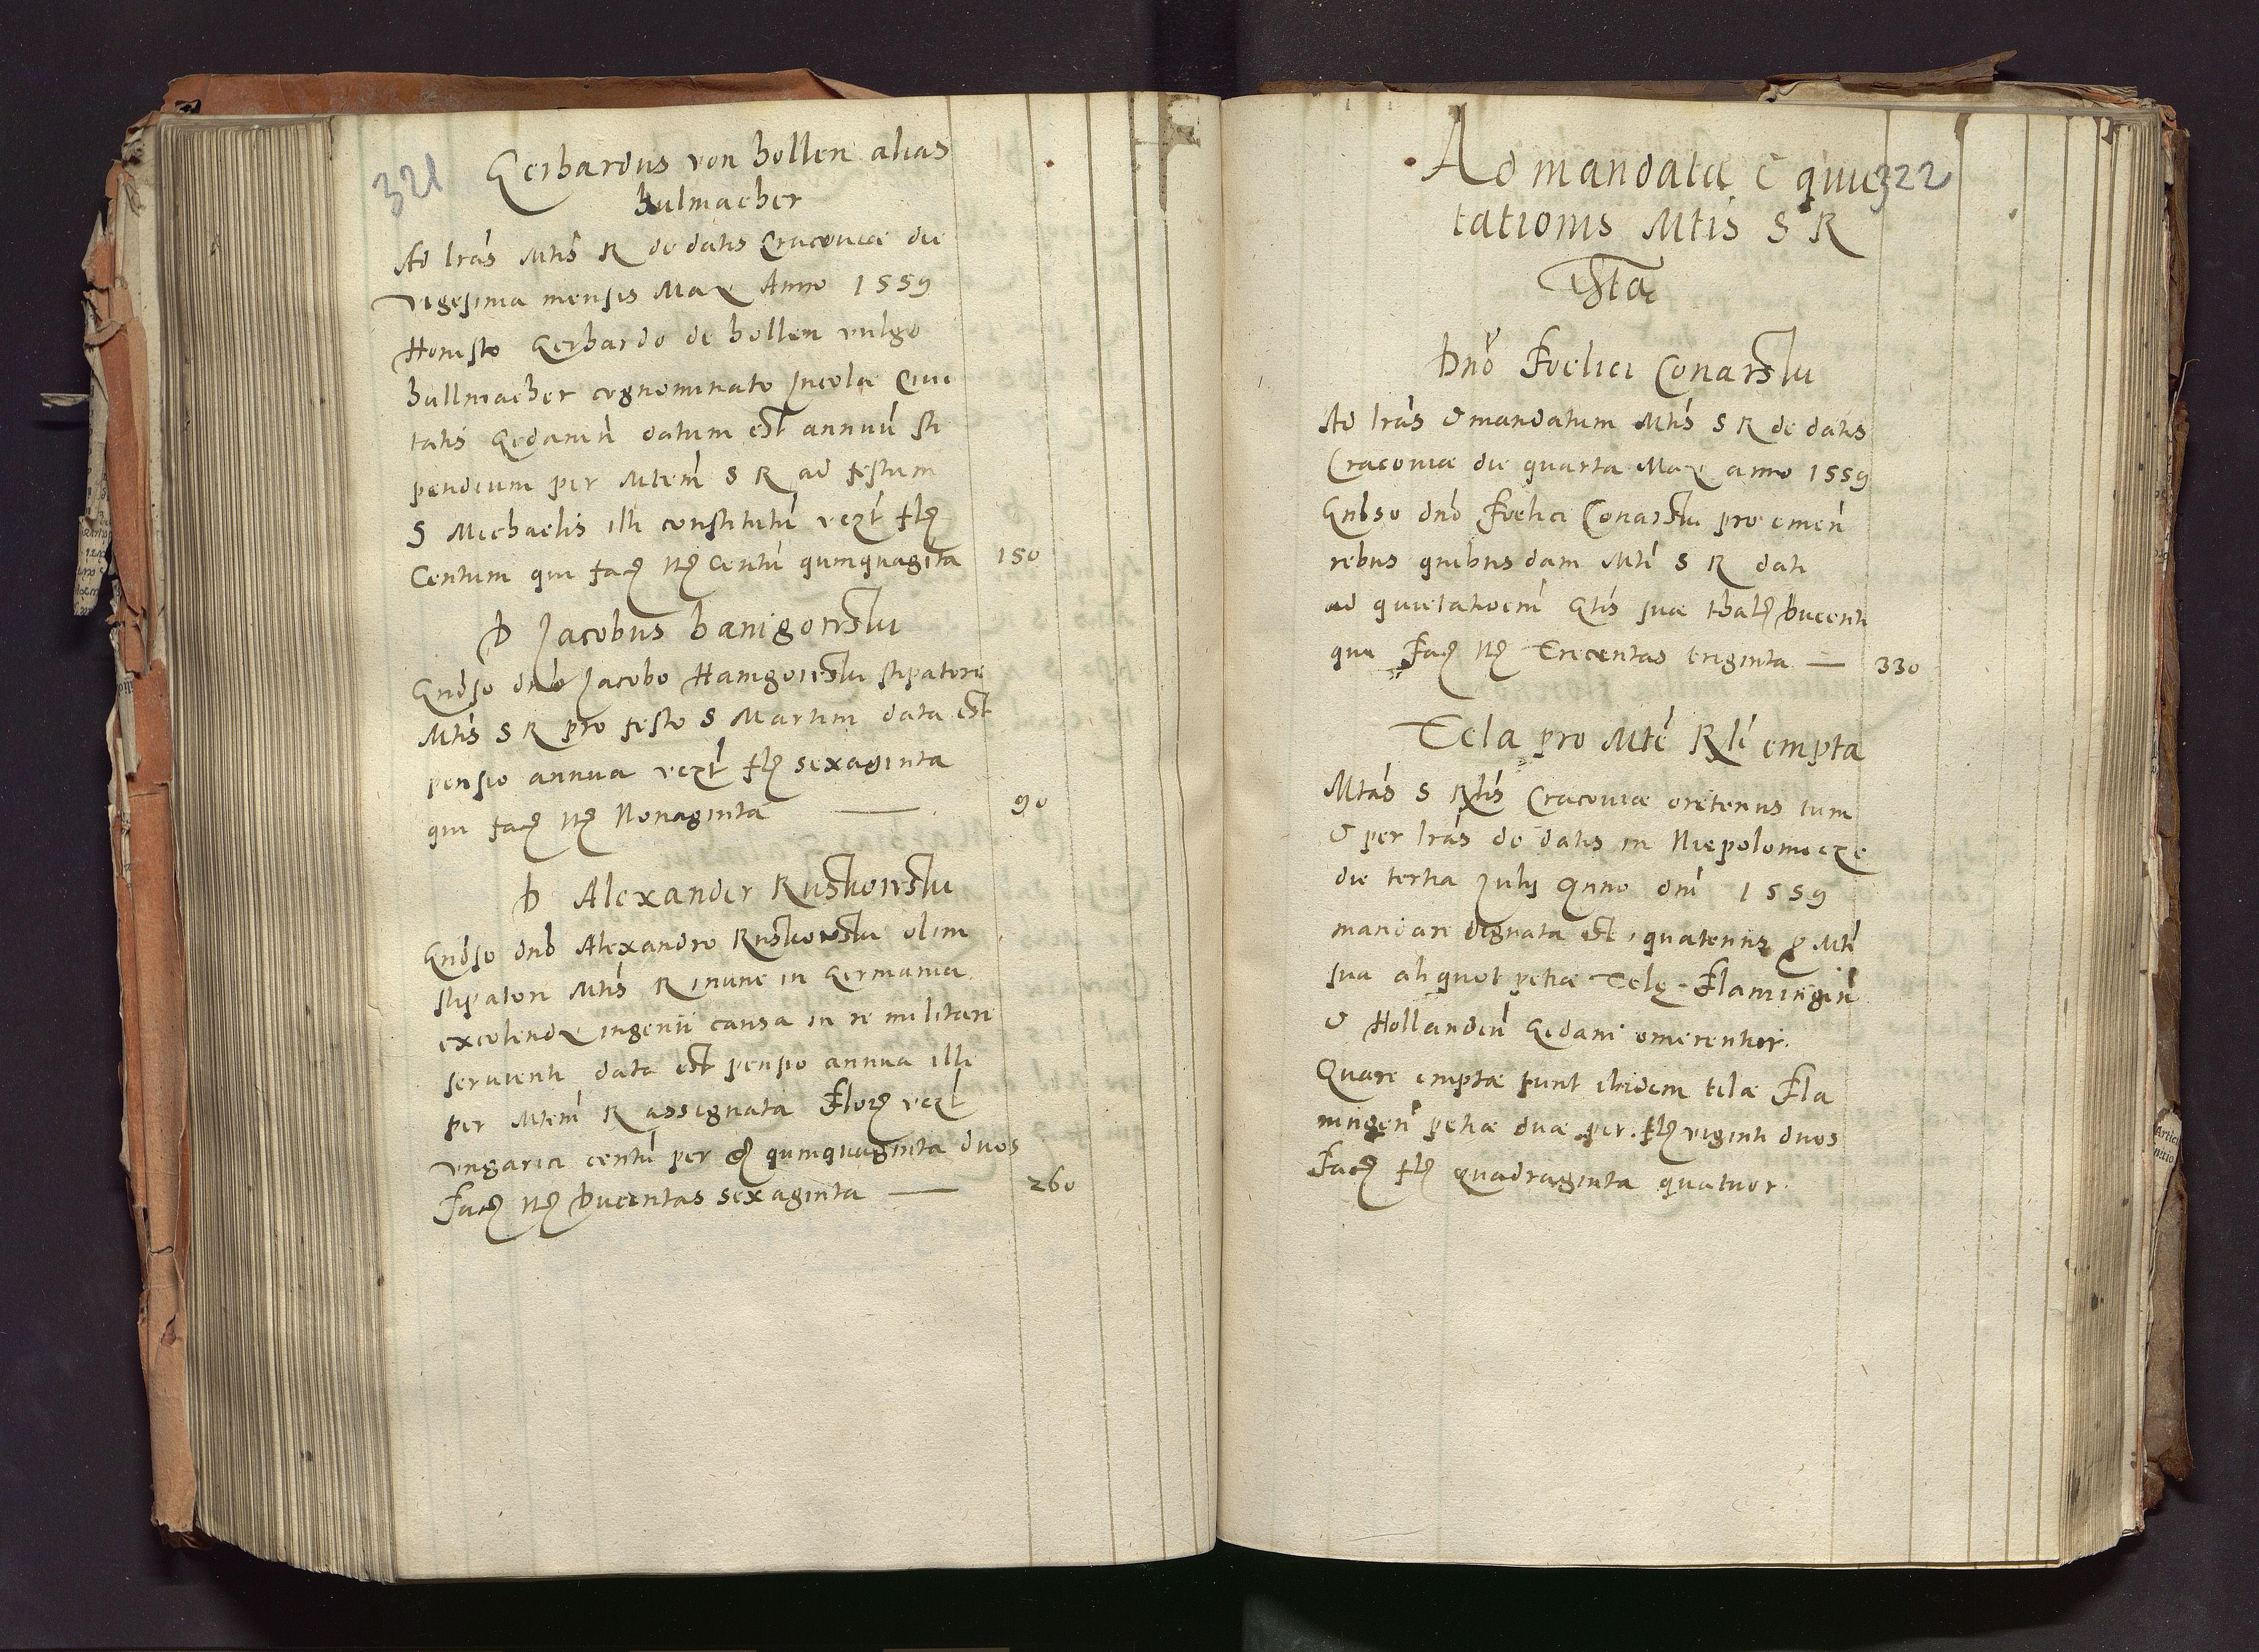 321
Gerhardus von hollen alias
hulmacher
Ad lras Mtis R de datis Cracoviae die
vigesima mensis Maÿ Anno 1559
Honesto Gerhardo de hollen vulgo
hullmacher cognominato Jncolae Civi
tatis Gedanen datum est annuu sti
pendium per Mtem S R ad festum
S Michaelis illi constitutu vezt fl
Centum qui fac mc Centu quinquaginta 150
D Jacobus hanigowski
Gndso dno Jacobo Hanigowski stipatori
Mtis S R pro festo S Martini data est
pensio annua vezt fl sexaginta
qui fac mc Nonaginta — 90
D Alexander Ruskowski
Gndso dno Alexandro Ruskowski olim
stipatori Mtis R nunc in Germania
excolendi ingenii causa in re militari
servienti data est pensio annua illi
per Mtem R assignata Flor vezt
ungarici centu per g quinquaginta duos
fac mc Ducentas sexaginta — 260
322
Ad mandata c quie
tationis Mtis S R
Ista
Dno Foelici Conarski
Ad lras & mandatum Mtis S R de datis
Cracoviae die quarta Maÿ anno 1559
Gnoso dno Foelici Conarski pro emen
rebus quibusdam Mti S R dati
ad quietatioem Gtis suae thal Ducenti
qui fac mc Trecentas triginta — 330
Tela pro Mte Rli empta
Mtas S Rlis Cracoviae oretenus tum
& per lras de datis in Niepolomicze
die tertia Julij Anno dni 1559
mandare dignata est, quatenus p Mti
sua aliquot petiae Telę Flamingin
& Hollanden Gedani emerentur.
Quare emptae sunt ibidem telae Fla
mingen petiae duae per fl viginti duos
fac fl quadraginta quatuor.